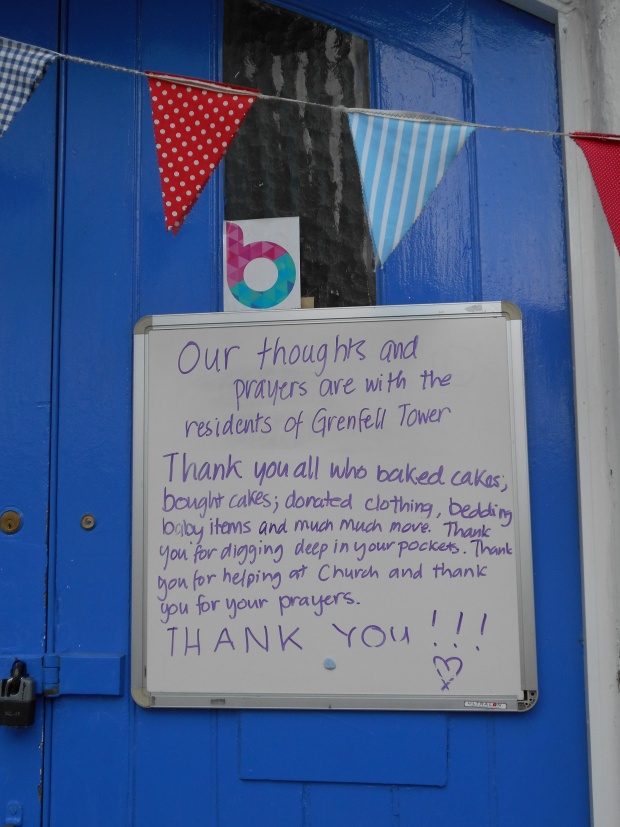 b
Our thoughts and
prayers are with the
residents of Grenfell Tower
Thank you all who baked cakes,
bought cakes; donated clothing, bedding
baby items and much much more. Thank
you for digging deep in your pockets. Thank
you for helping at Church and thank
you for your prayers.
THANK YOU !!!